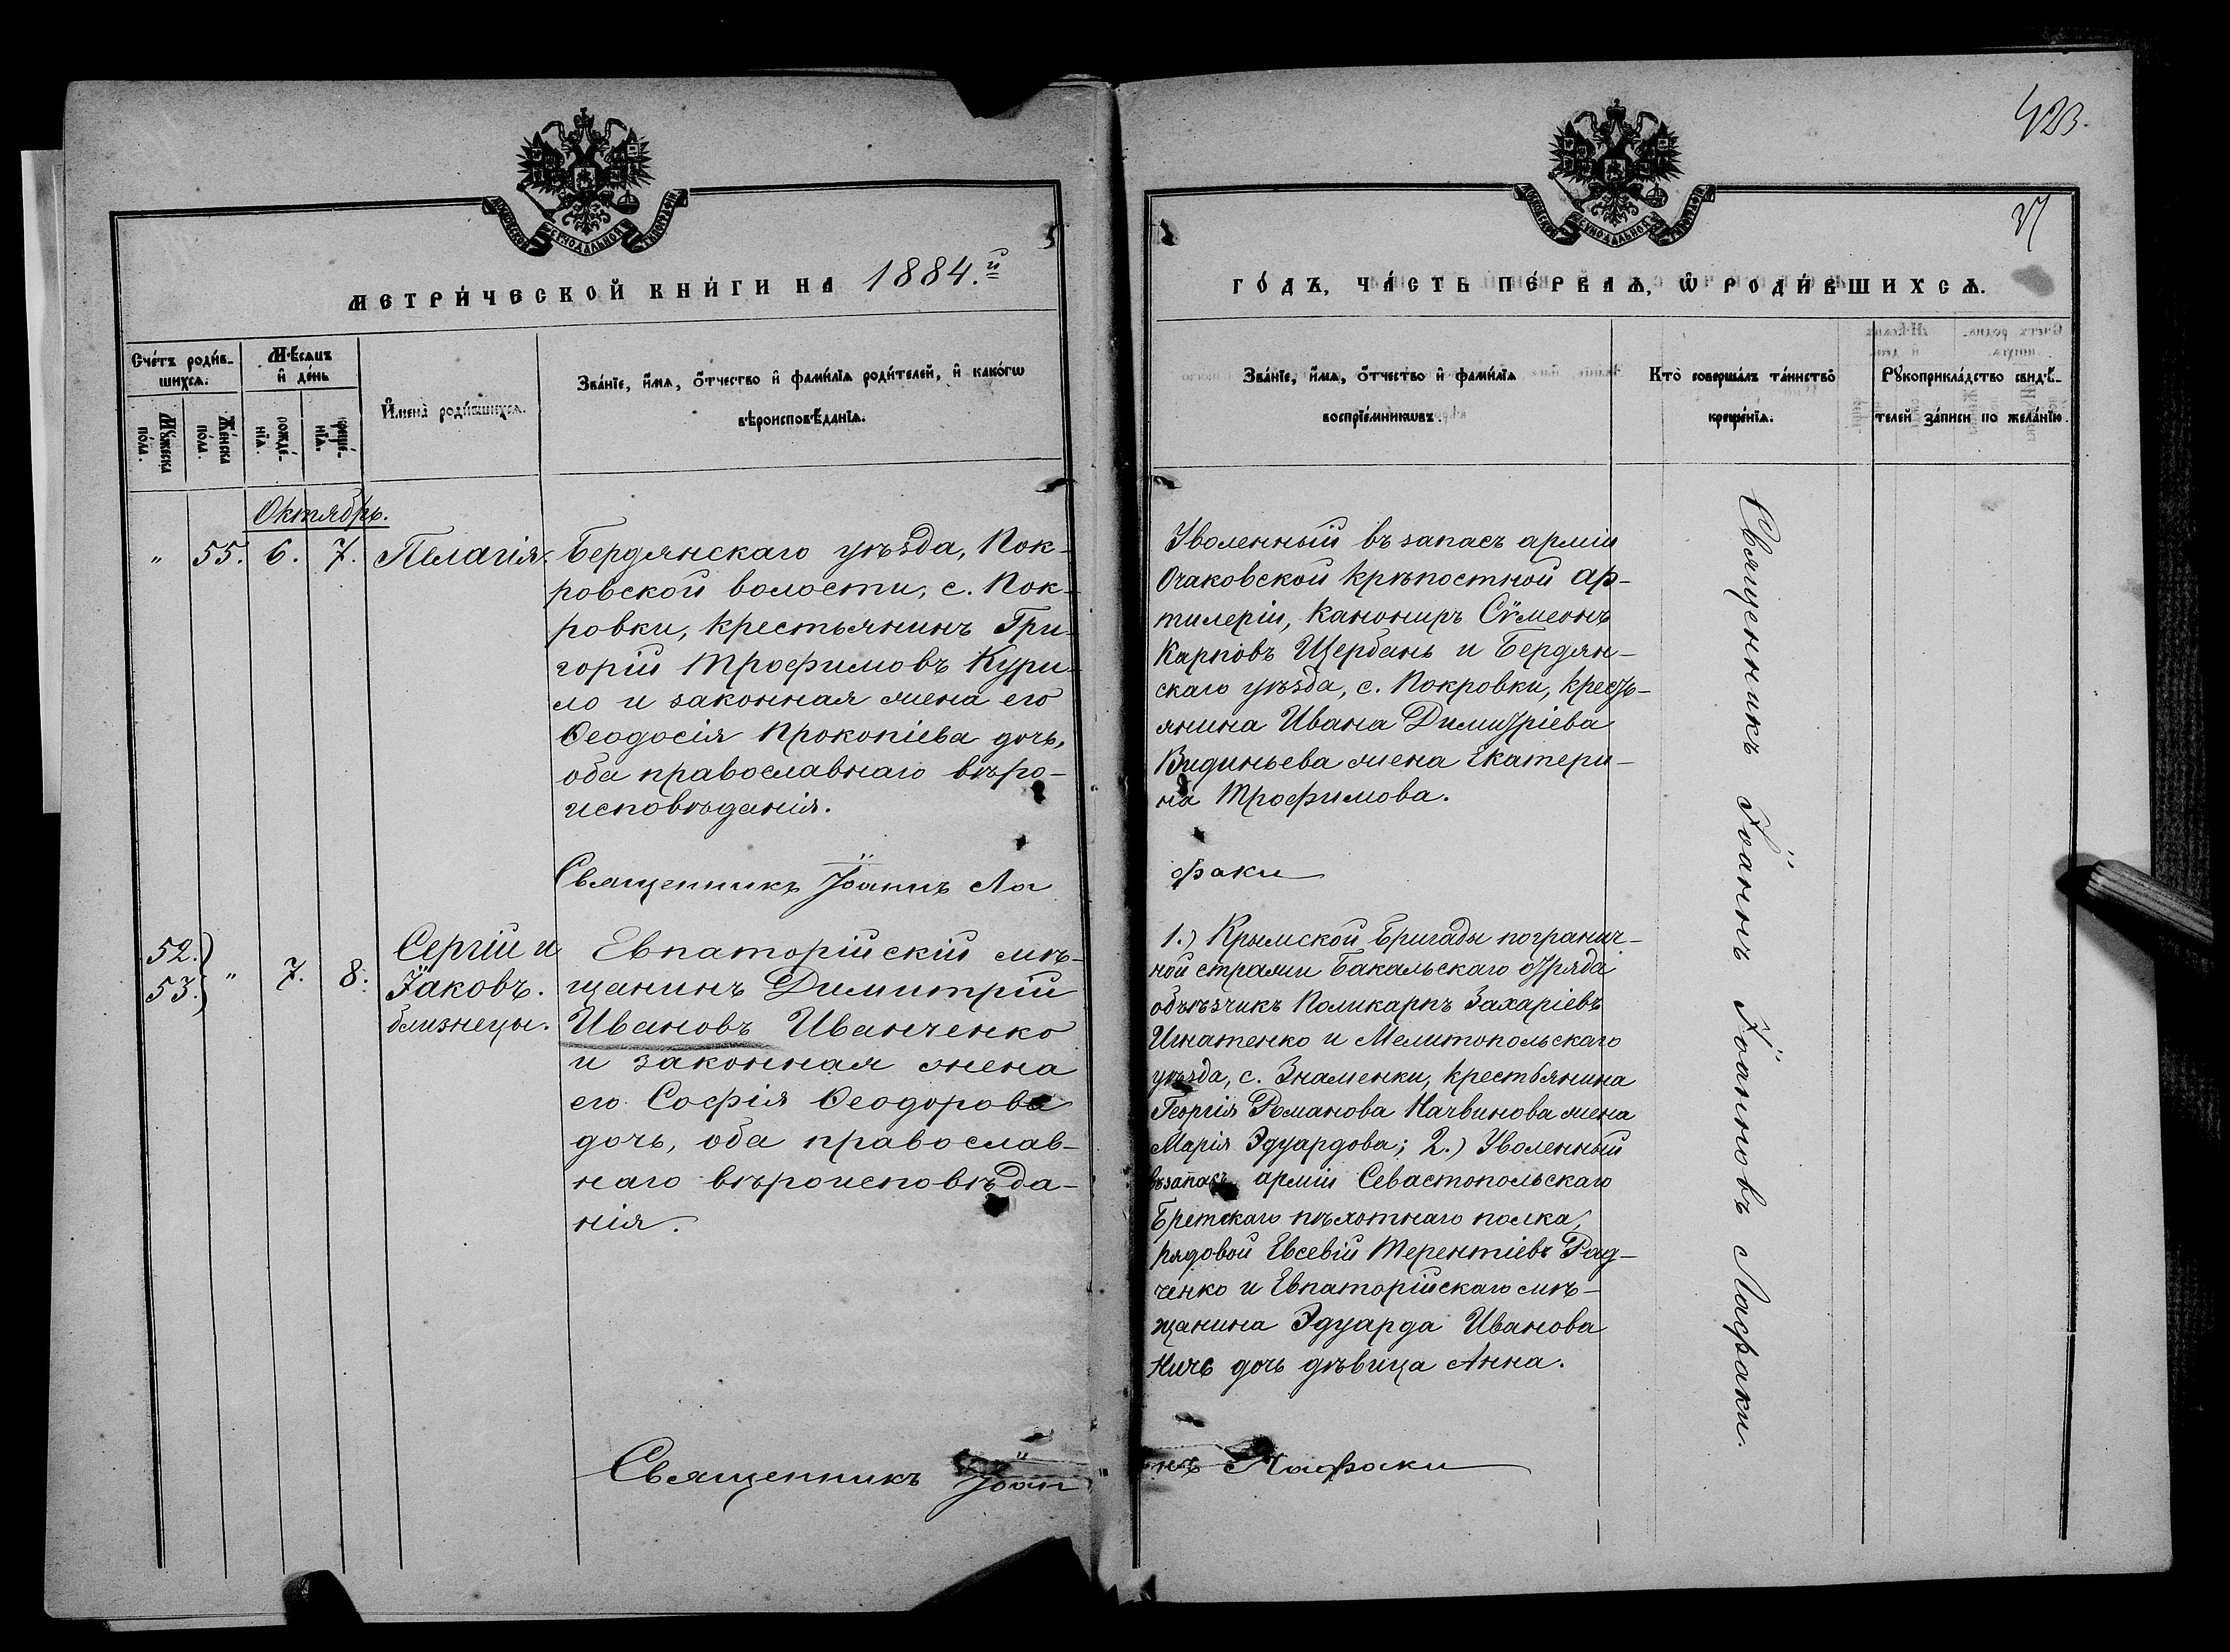 423.
МОСКОВСКОЙ СѴНОДАЛЬНОЙ ТИПОГРАФІИ
МОСКОВСКОЙ СѴНОДАЛЬНОЙ ТИПОГРАФІИ
МЕТРИ́ЧЕСКОЙ КНИ́ГИ НА 1884.й
ГО́ДЪ, ЧА́СТЬ ПЕ́РВАѦ, Ѡ РОДИ́ВШИХСѦ.
Сче́тъ роди́в-
шихсѧ.
Мѣ́сѧцъ
и де́нь
Му́жеска
по́ла.
Же́нска
по́ла.
рожде́-
нїѧ.
креще́-
нїѧ.
Имена̀ роди́вшихсѧ.
Зва́нїе, и́мѧ, о́тчество и фами́лїѧ роди́телей, и како́гѡ
вѣроисповѣ́данїѧ.
Зва́нїе, и́мѧ, о́тчество и фами́лїѧ
воспрїе́мникѡвъ.
Кто̀ соверша́лъ та́инство
креще́нїѧ.
Рꙋкоприкла́дство свидѣ́-
телей за́писи по жела́нїю.
Октябрь.
" 55. 6. 7. Пелагія.
Бердянскаго уѣзда, Пок-
ровской волости, с. Пок-
ровки, крестьянинъ Гри-
горій Трофимовъ Кури-
ло и законная жена его
Ѳеодосія Прокопіева дочь,
оба православнаго вѣро-
исповѣданія.
Уволенный въ запасъ арміи
Очаковской крѣпостной ар-
тилеріи, канониръ Сѵмеонъ
Карповъ Щербань и Бердян-
скаго уѣзда, с. Покровки, кресть-
янина Ивана Димитріева
Видиньева жена Екатери-
на Трофимова.
Священникъ Іоаннъ Ла
факи
52.
53. " 7. 8.
Сергій и
Іаковъ.
близнецы.
Евпаторійскій мѣ-
щанинъ Димитрій
Ивановъ Иванченко
и законная жена
его Софія Ѳеодорова
дочь, оба православ-
наго вѣроисповѣда-
нія.
1.) Крымской Бригады погранич-
ной стражи Бакальскаго отряда
объѣзчикъ Поликарпъ Захаріевъ
Игнатенко и Мелитопольскаго
уѣзда, с. Знаменки, крестьянина
Георгія Романова Начвинова жена
Марія Эдуардова; 2.) Уволенный
въ запасъ арміи Севастопольскаго
Бретскаго пѣхотнаго полка,
рядовой Евсевій Терентіевъ Рад-
ченко и Евпаторійскаго мѣ-
щанина Эдуарда Иванова
Ничь дочь дѣвица Анна.
Священникъ Іоан
нъ Лафаки
Священникъ Іоаннъ Іоанновъ Лафаки.